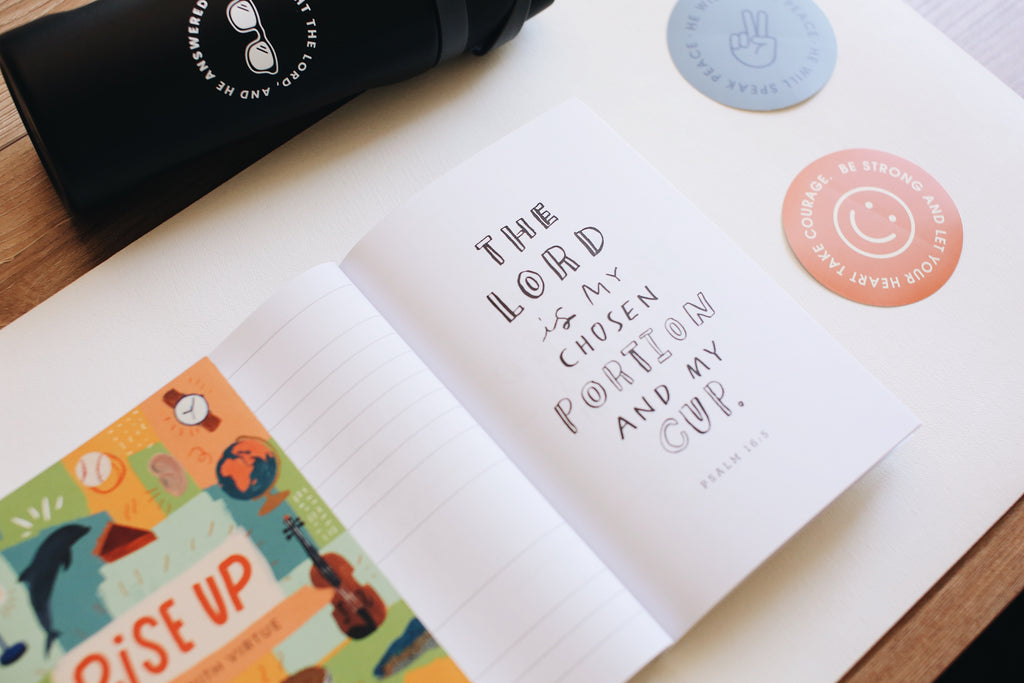 AT THE LORD, AND HE ANSWERED
HE WILL SPEAK PEACE
PEACE HE WI
BE STRONG AND LET YOUR HEART TAKE COURAGE.
THE
LORD
is MY
CHOSEN
PORTION
AND MY
CUP.
PSALM 16:5
RiSE UP
WITH VIRTUE